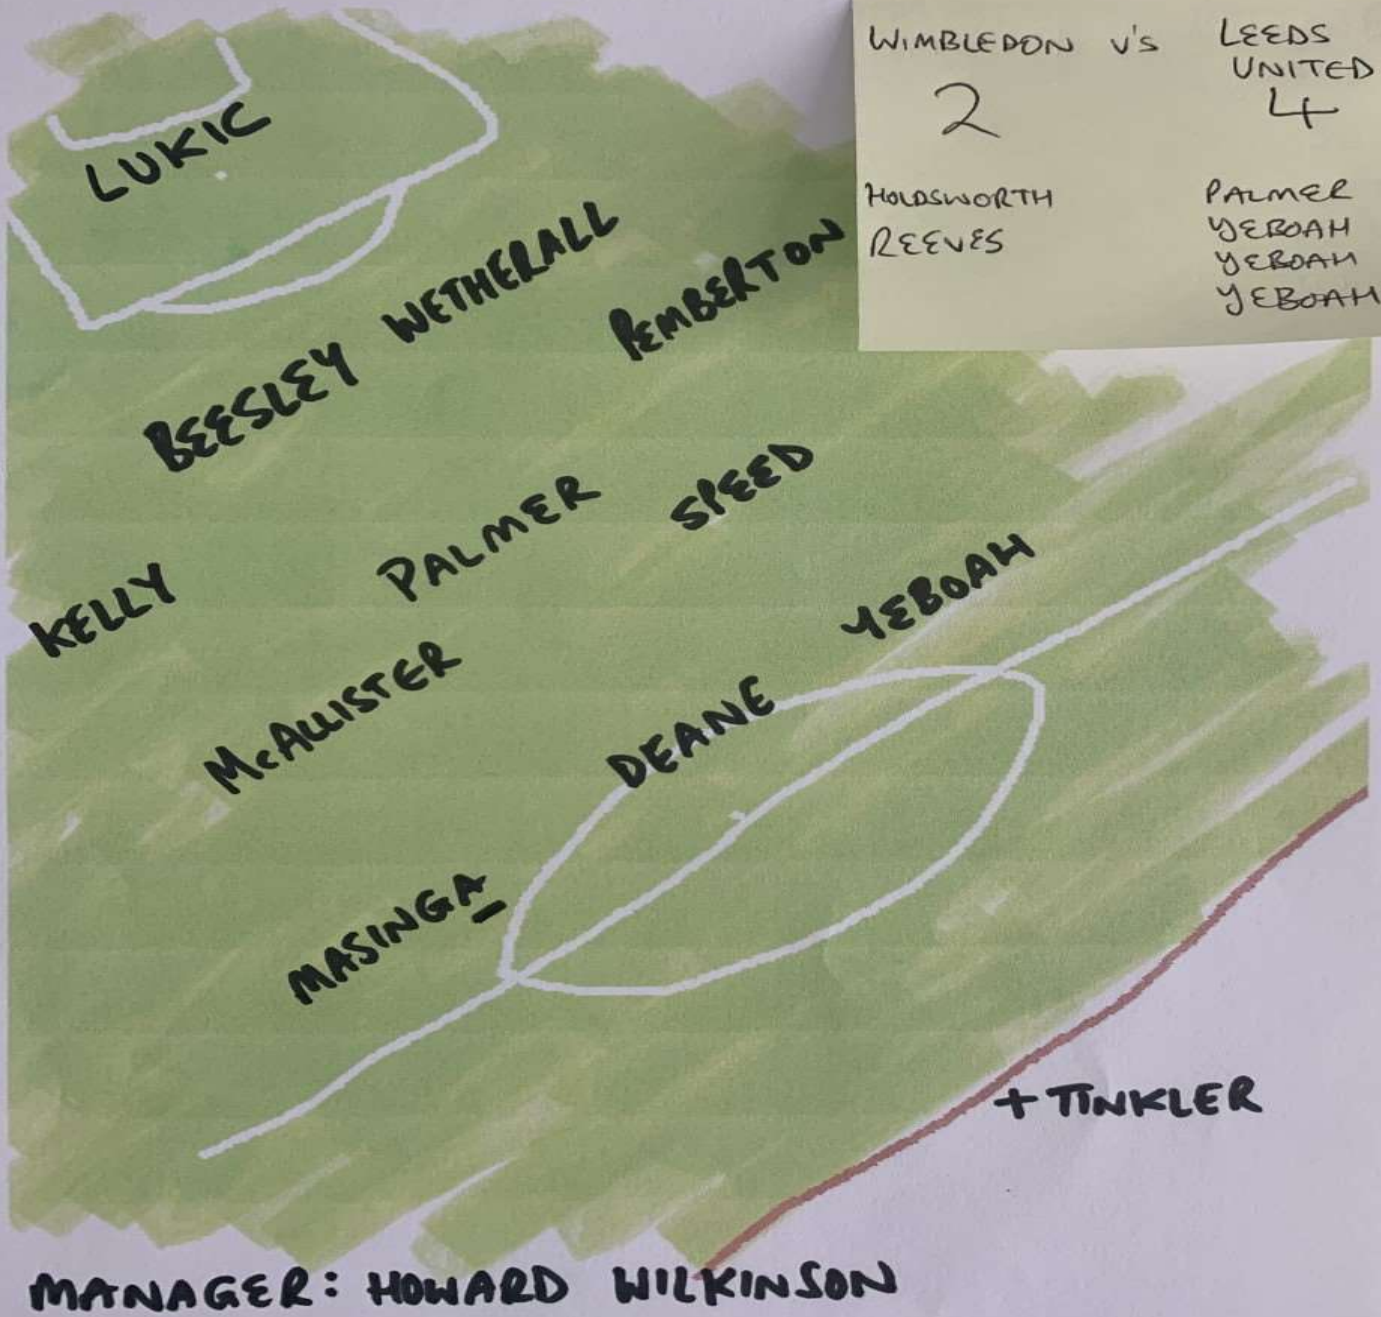 WIMBLEDON V'S LEEDS
UNITED
2 4
HOLDSWORTH PALMER
REEVES YEBOAH
YEBOAH
YEBOAH
LUKIC
BEESLEY WETHERALL PEMBERTON
KELLY PALMER SPEED
McALLISTER DEANE YEBOAH
MASINGA
+ TINKLER
MANAGER: HOWARD WILKINSON